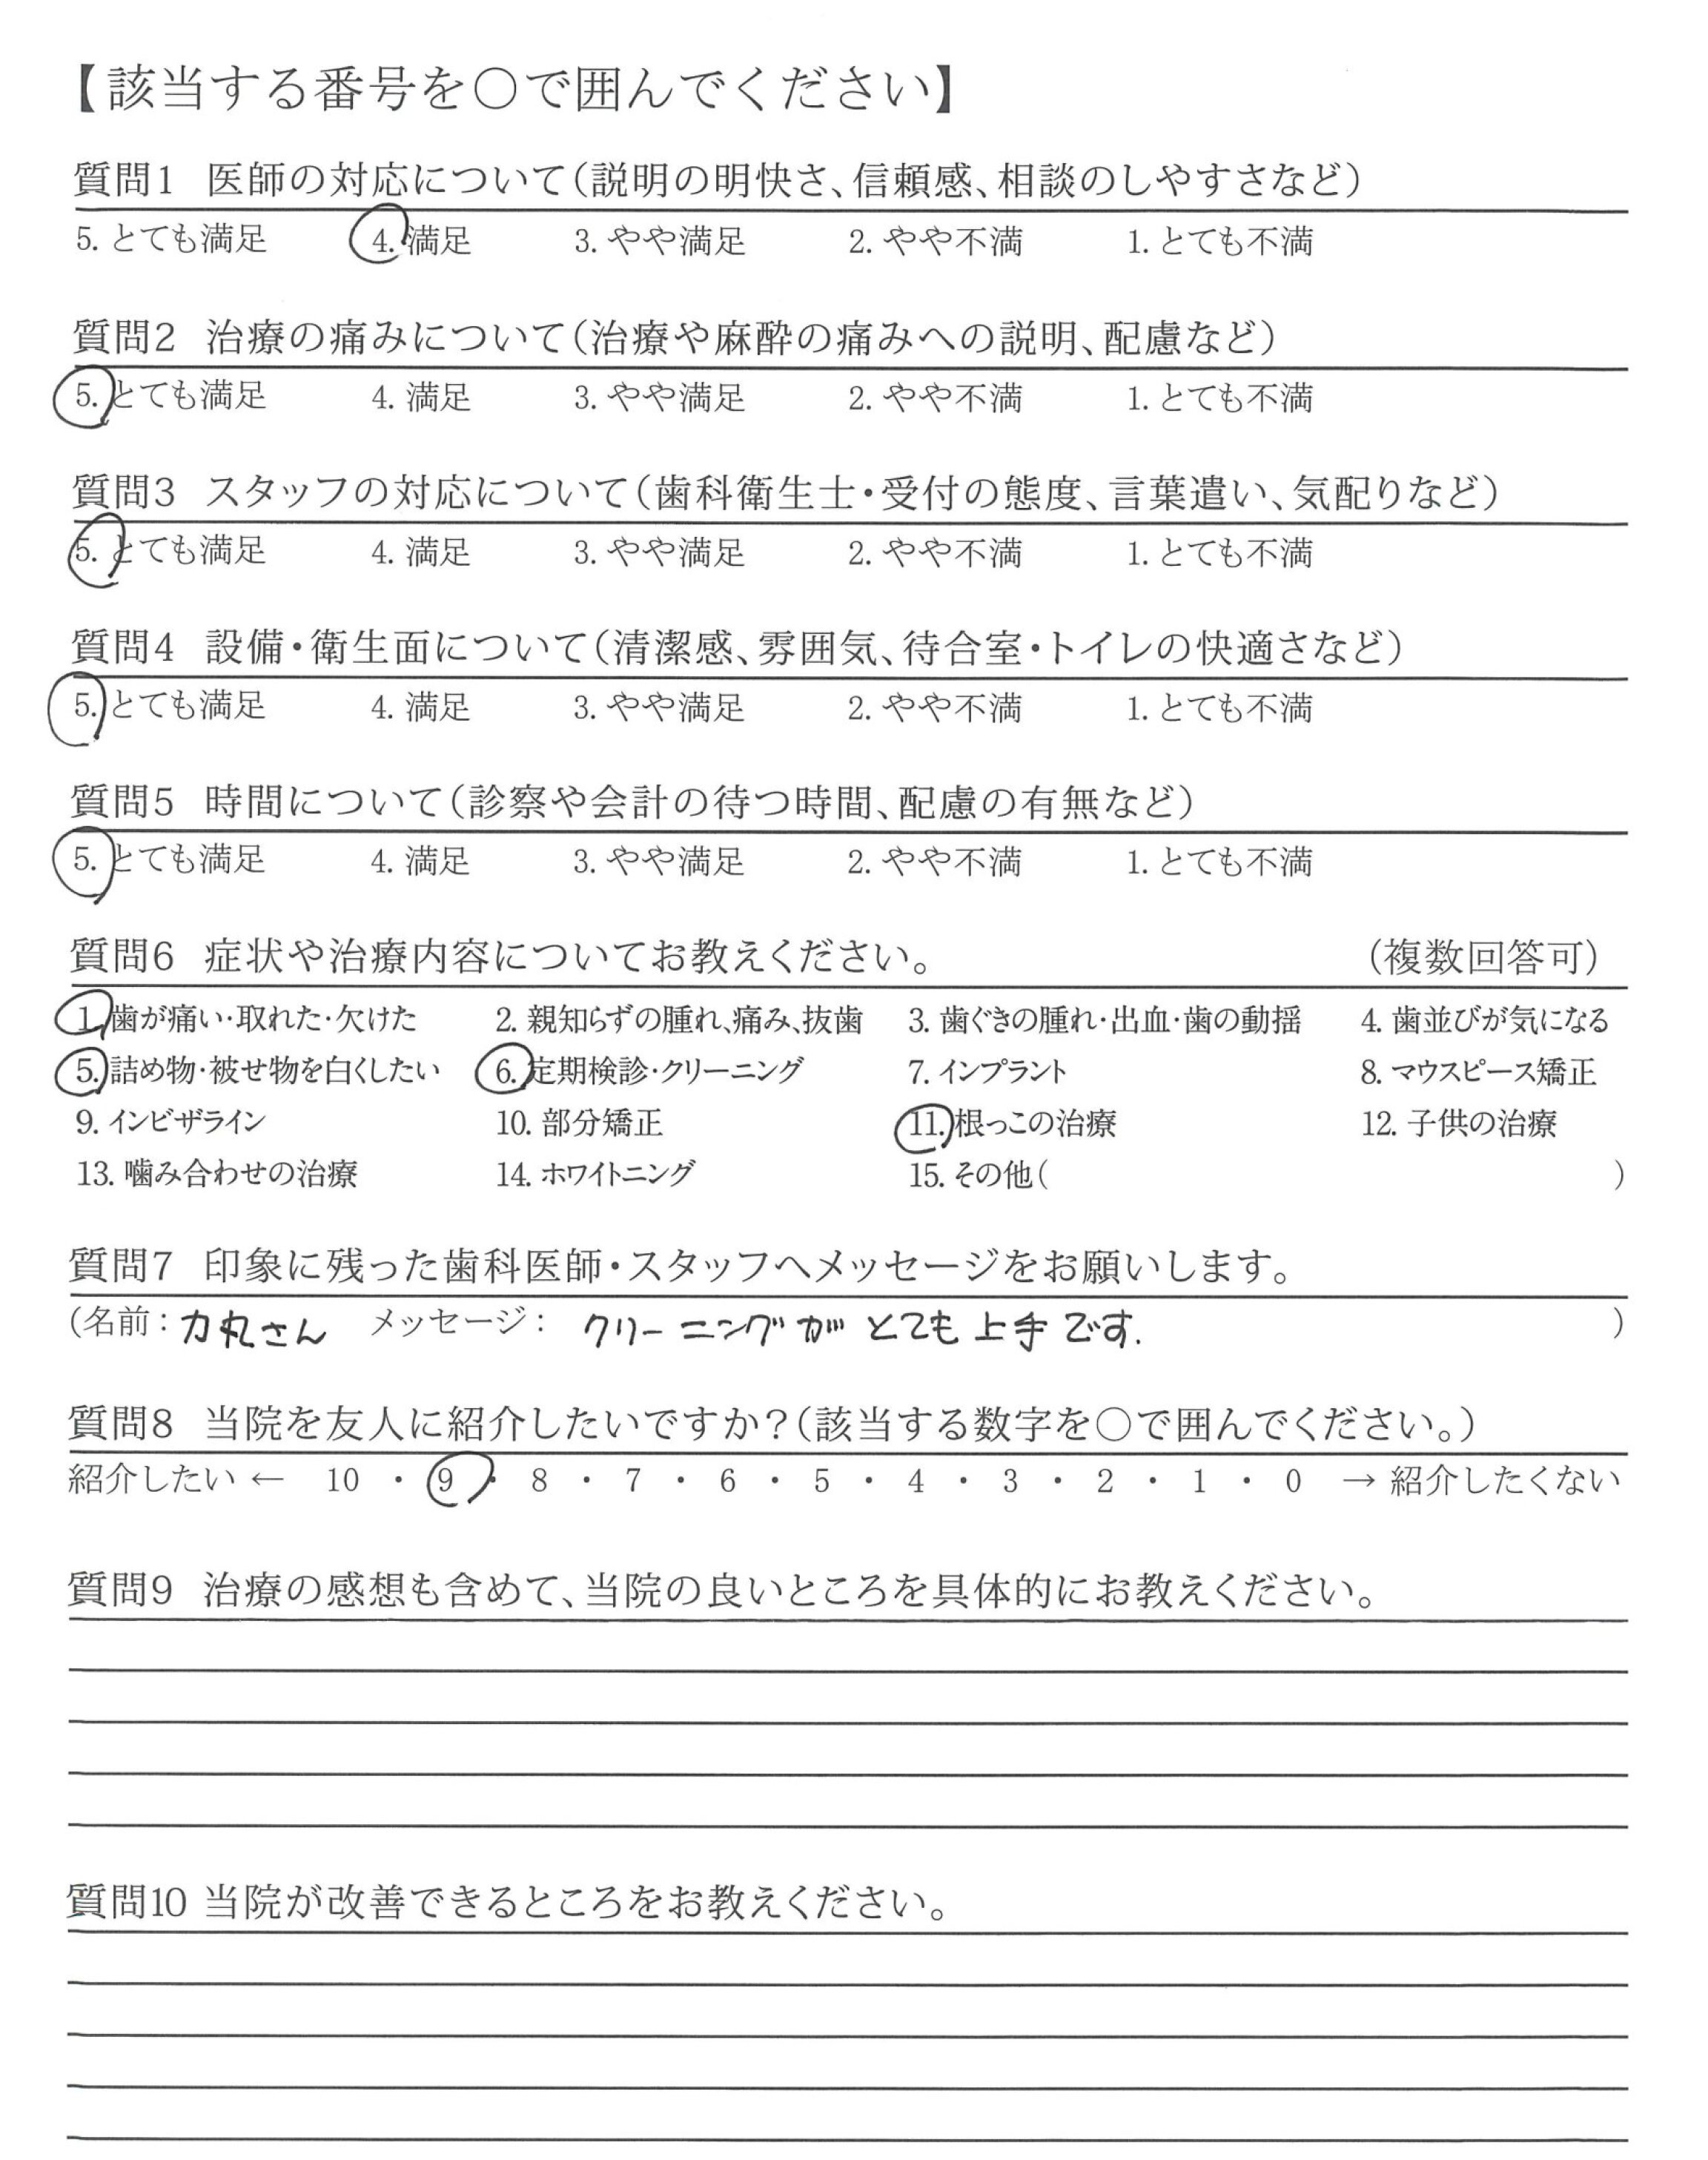 【該当する番号を〇で囲んでください】
質問1 医師の対応について（説明の明快さ、信頼感、相談のしやすさなど）
5. とても満足 4. 満足 3. やや満足 2. やや不満 1. とても不満
質問2 治療の痛みについて（治療や麻酔の痛みへの説明、配慮など）
5. とても満足 4. 満足 3. やや満足 2. やや不満 1. とても不満
質問3 スタッフの対応について（歯科衛生士・受付の態度、言葉遣い、気配りなど）
5. とても満足 4. 満足 3. やや満足 2. やや不満 1. とても不満
質問4 設備・衛生面について（清潔感、雰囲気、待合室・トイレの快適さなど）
5. とても満足 4. 満足 3. やや満足 2. やや不満 1. とても不満
質問5 時間について（診察や会計の待つ時間、配慮の有無など）
5. とても満足 4. 満足 3. やや満足 2. やや不満 1. とても不満
質問6 症状や治療内容についてお教えください。 （複数回答可）
1. 歯が痛い・取れた・欠けた 2. 親知らずの腫れ、痛み、抜歯 3. 歯ぐきの腫れ・出血・歯の動揺 4. 歯並びが気になる
5. 詰め物・被せ物を白くしたい 6. 定期検診・クリーニング 7. インプラント 8. マウスピース矯正
9. インビザライン 10. 部分矯正 11. 根っこの治療 12. 子供の治療
13. 噛み合わせの治療 14. ホワイトニング 15. その他（ ）
質問7 印象に残った歯科医師・スタッフへメッセージをお願いします。
（名前：力丸さん メッセージ： クリーニングがとても上手です. ）
質問8 当院を友人に紹介したいですか？（該当する数字を〇で囲んでください。）
紹介したい ← 10 ・ 9 ・ 8 ・ 7 ・ 6 ・ 5 ・ 4 ・ 3 ・ 2 ・ 1 ・ 0 → 紹介したくない
質問9 治療の感想も含めて、当院の良いところを具体的にお教えください。
質問10 当院が改善できるところをお教えください。